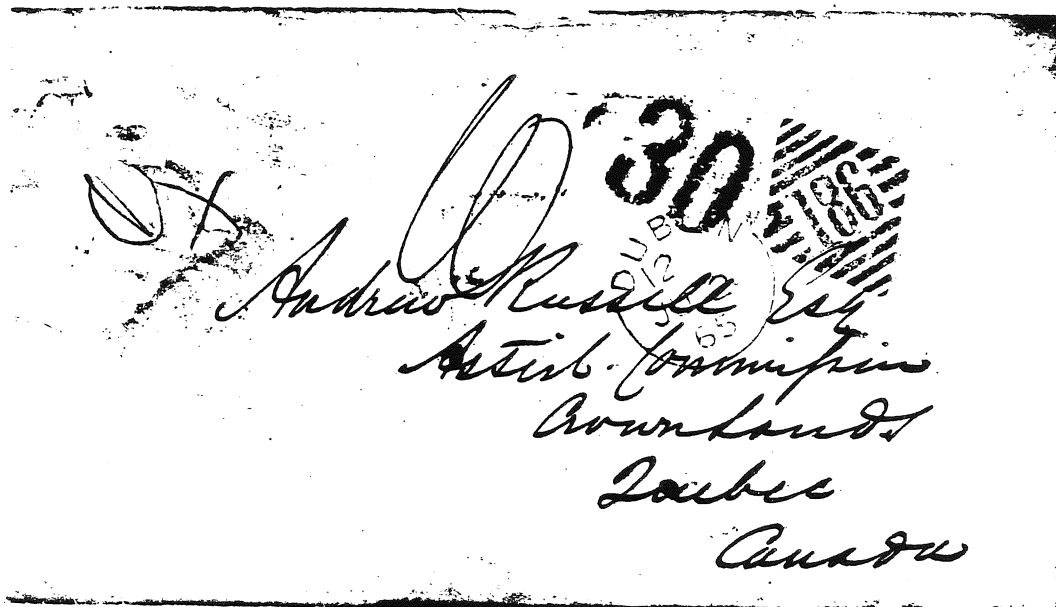 30
186
DUBLIN
12
65
Andrew Russell Esq
Assist. Commissioner
Crown Lands
Quebec
Canada